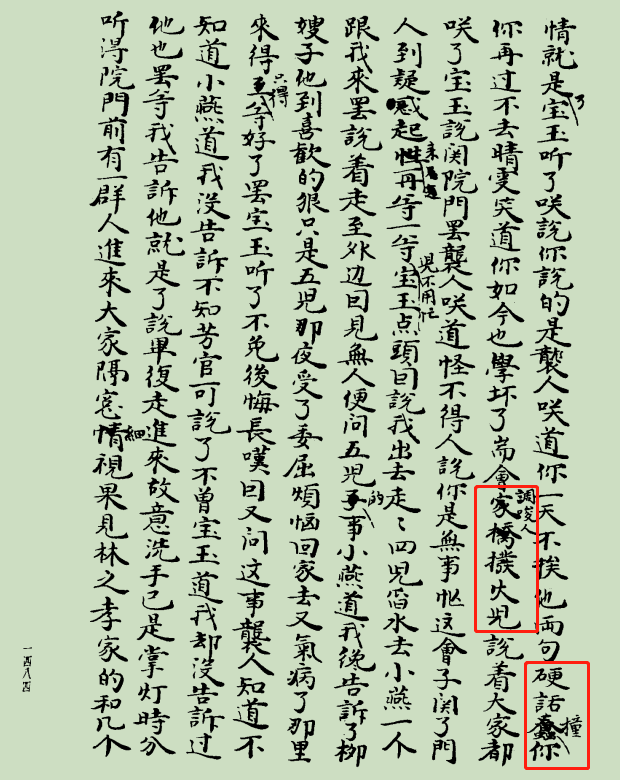 情就是宝玉听了咲說你說的是襲人咲道你一天不挨他兩句硬話蠢你
了
撞
你再过不去晴雯笑道你如今也學坏了耑會家橋撥火児說着大家都
調唆人
咲了宝玉說関院門罷襲人咲道怪不得人說你是無事忙这會子関了門
人到疑惑起性再等一等宝玉点頭囙說我出去走〻四児舀水去小燕一个
児不用忙
跟我來罷說着走至外边囙見無人便問五児之事小燕道我纔告訴了柳
的
嫂子他到喜歡的狠只是五児那夜受了委屈煩惱回家去又氣病了那里
來得等好了罷宝玉听了不免後悔長嘆囙又问这事襲人知道不
只得
知道小燕道我没告訴不知芳官可說了不曾宝玉道我却没告訴过
他也罢等我告訴他就是了說畢復走進來故意洗手已是掌灯時分
听淂院門前有一群人進來大家隔窓情視果見林之孝家的和几个
細
一四八四